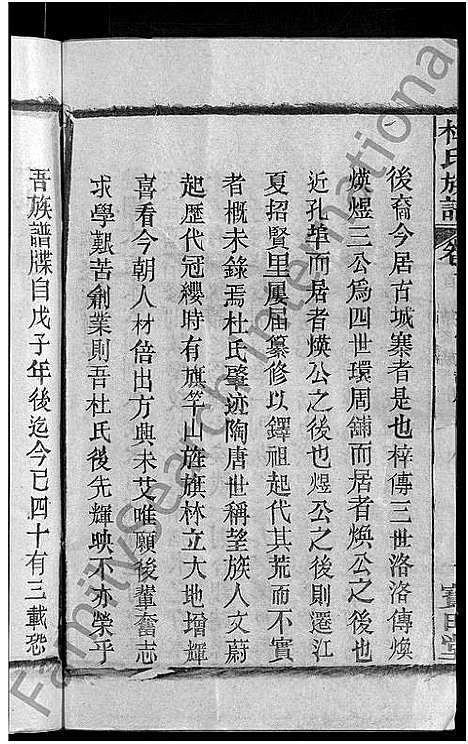 杜氏族譜
後裔今居古城寨者是也梓傳三世洛洛傳煥
煐煜三公爲四世環周舖而居者煥公之後也
近孔埠而居者煐公之後也煜公之後則遷江
夏招賢里屢届纂修以鐸祖起代其荒而不實
者概未錄焉杜氏肇迹陶唐世稱望族人文蔚
起歷代冠纓時有旗竿山旌旗林立大地增輝
喜看今朝人材倍出方興未艾唯願後輩奮志
求學艱苦創業則吾杜氏後先輝映不亦榮乎
吾族譜牒自戊子年後迄今已四十有三載恐
FamilySearch International